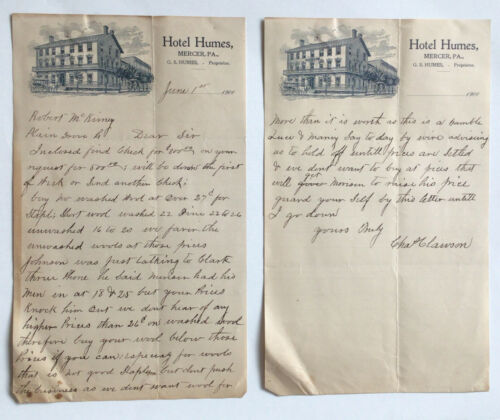 Hotel Humes,
MERCER, PA.,
G. S. HUMES, - Proprietor.
June 1st 1900
Robert McKinney
Plain Grove Pa Dear Sir
Inclosed find Check for 200.00 on your
request for 500.00; will be down the first
of Week or Send another Check;
buy no washed Wool at Over 27¢ for
Staple; Short wool washed 22 Fine 22 to 26
unwashed 16 to 20 we favor the
unwashed wools at those prices
Johnson was just talking to Clark
through Phone he said Munsen had his
Men in at 18 & 25 but your Prices
Knock him But we dont hear of any
higher Prices than 26¢ on washed Wool
therefore buy your wool below those
Prices if you can: especialy for wools
that is not good Staple but dont push
the business as we dont want wool for
Hotel Humes,
MERCER, PA.,
G. S. HUMES, - Proprietor.
1900
More than it is worth as this is a humble
Luce & Manny Say to day by wire advising
us to hold off untill prices are Settled
& we dont want to buy at prices that
will get Munsen to raise his price
guard your Self by this letter untill
I go down
yours Truly
Chas Clawson